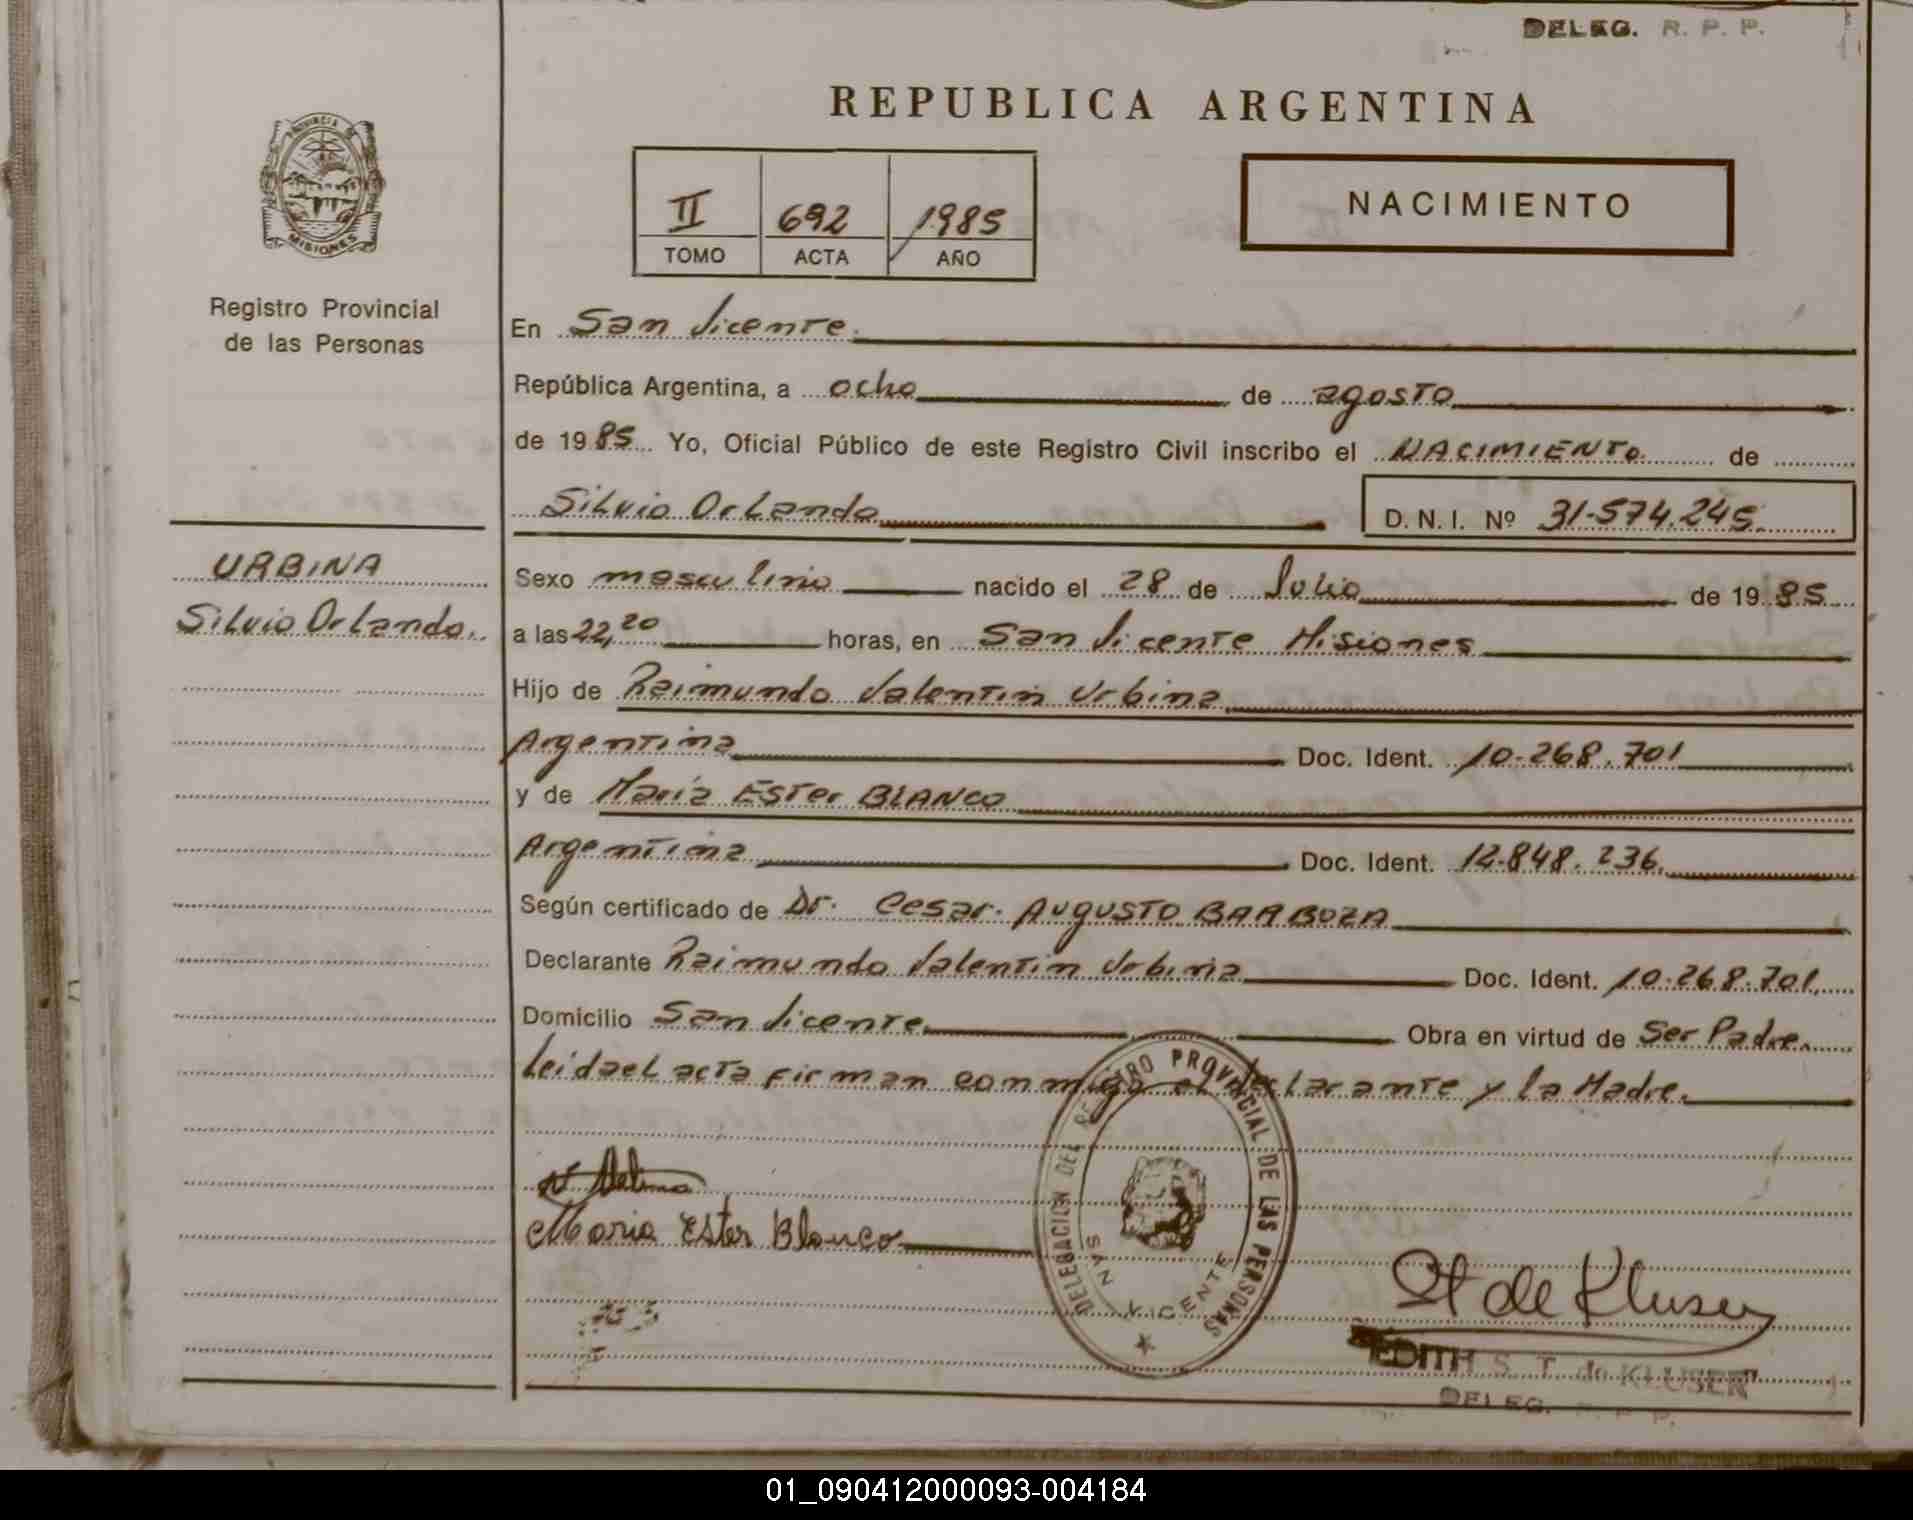 DELEG. R. P. P.
REPUBLICA ARGENTINA
PROVINCIA DE
MISIONES
Registro Provincial
de las Personas
II 692 1985
TOMO ACTA AÑO
NACIMIENTO
En San Vicente.
República Argentina, a ocho de agosto
de 1985 Yo, Oficial Público de este Registro Civil inscribo el NACIMIENTO de
Silvio Orlando D. N. I. Nº 31.574.245.
URBINA
Silvio Orlando.
Sexo masculino nacido el 28 de Julio de 1985
a las 22,20 horas, en San Vicente Misiones
Hijo de Raimundo Valentin Urbina
Argentina Doc. Ident. 10.268.701
y de María Ester BLANCO
Argentina Doc. Ident. 12.848.236.
Según certificado de Dr. Cesar. AUGUSTO BARBOZA
Declarante Raimundo Valentin Urbina Doc. Ident. 10.268.701.
Domicilio San Vicente Obra en virtud de Ser Padre.
Leida el acta firman conmigo el declarante y la Madre.
DELEGACION DEL REGISTRO PROVINCIAL DE LAS PERSONAS
SAN VICENTE
Maria Ester Blanco
de Kluser
EDITH S. T. de KLUSER
DELEG. R. P. P.
01_090412000093-004184